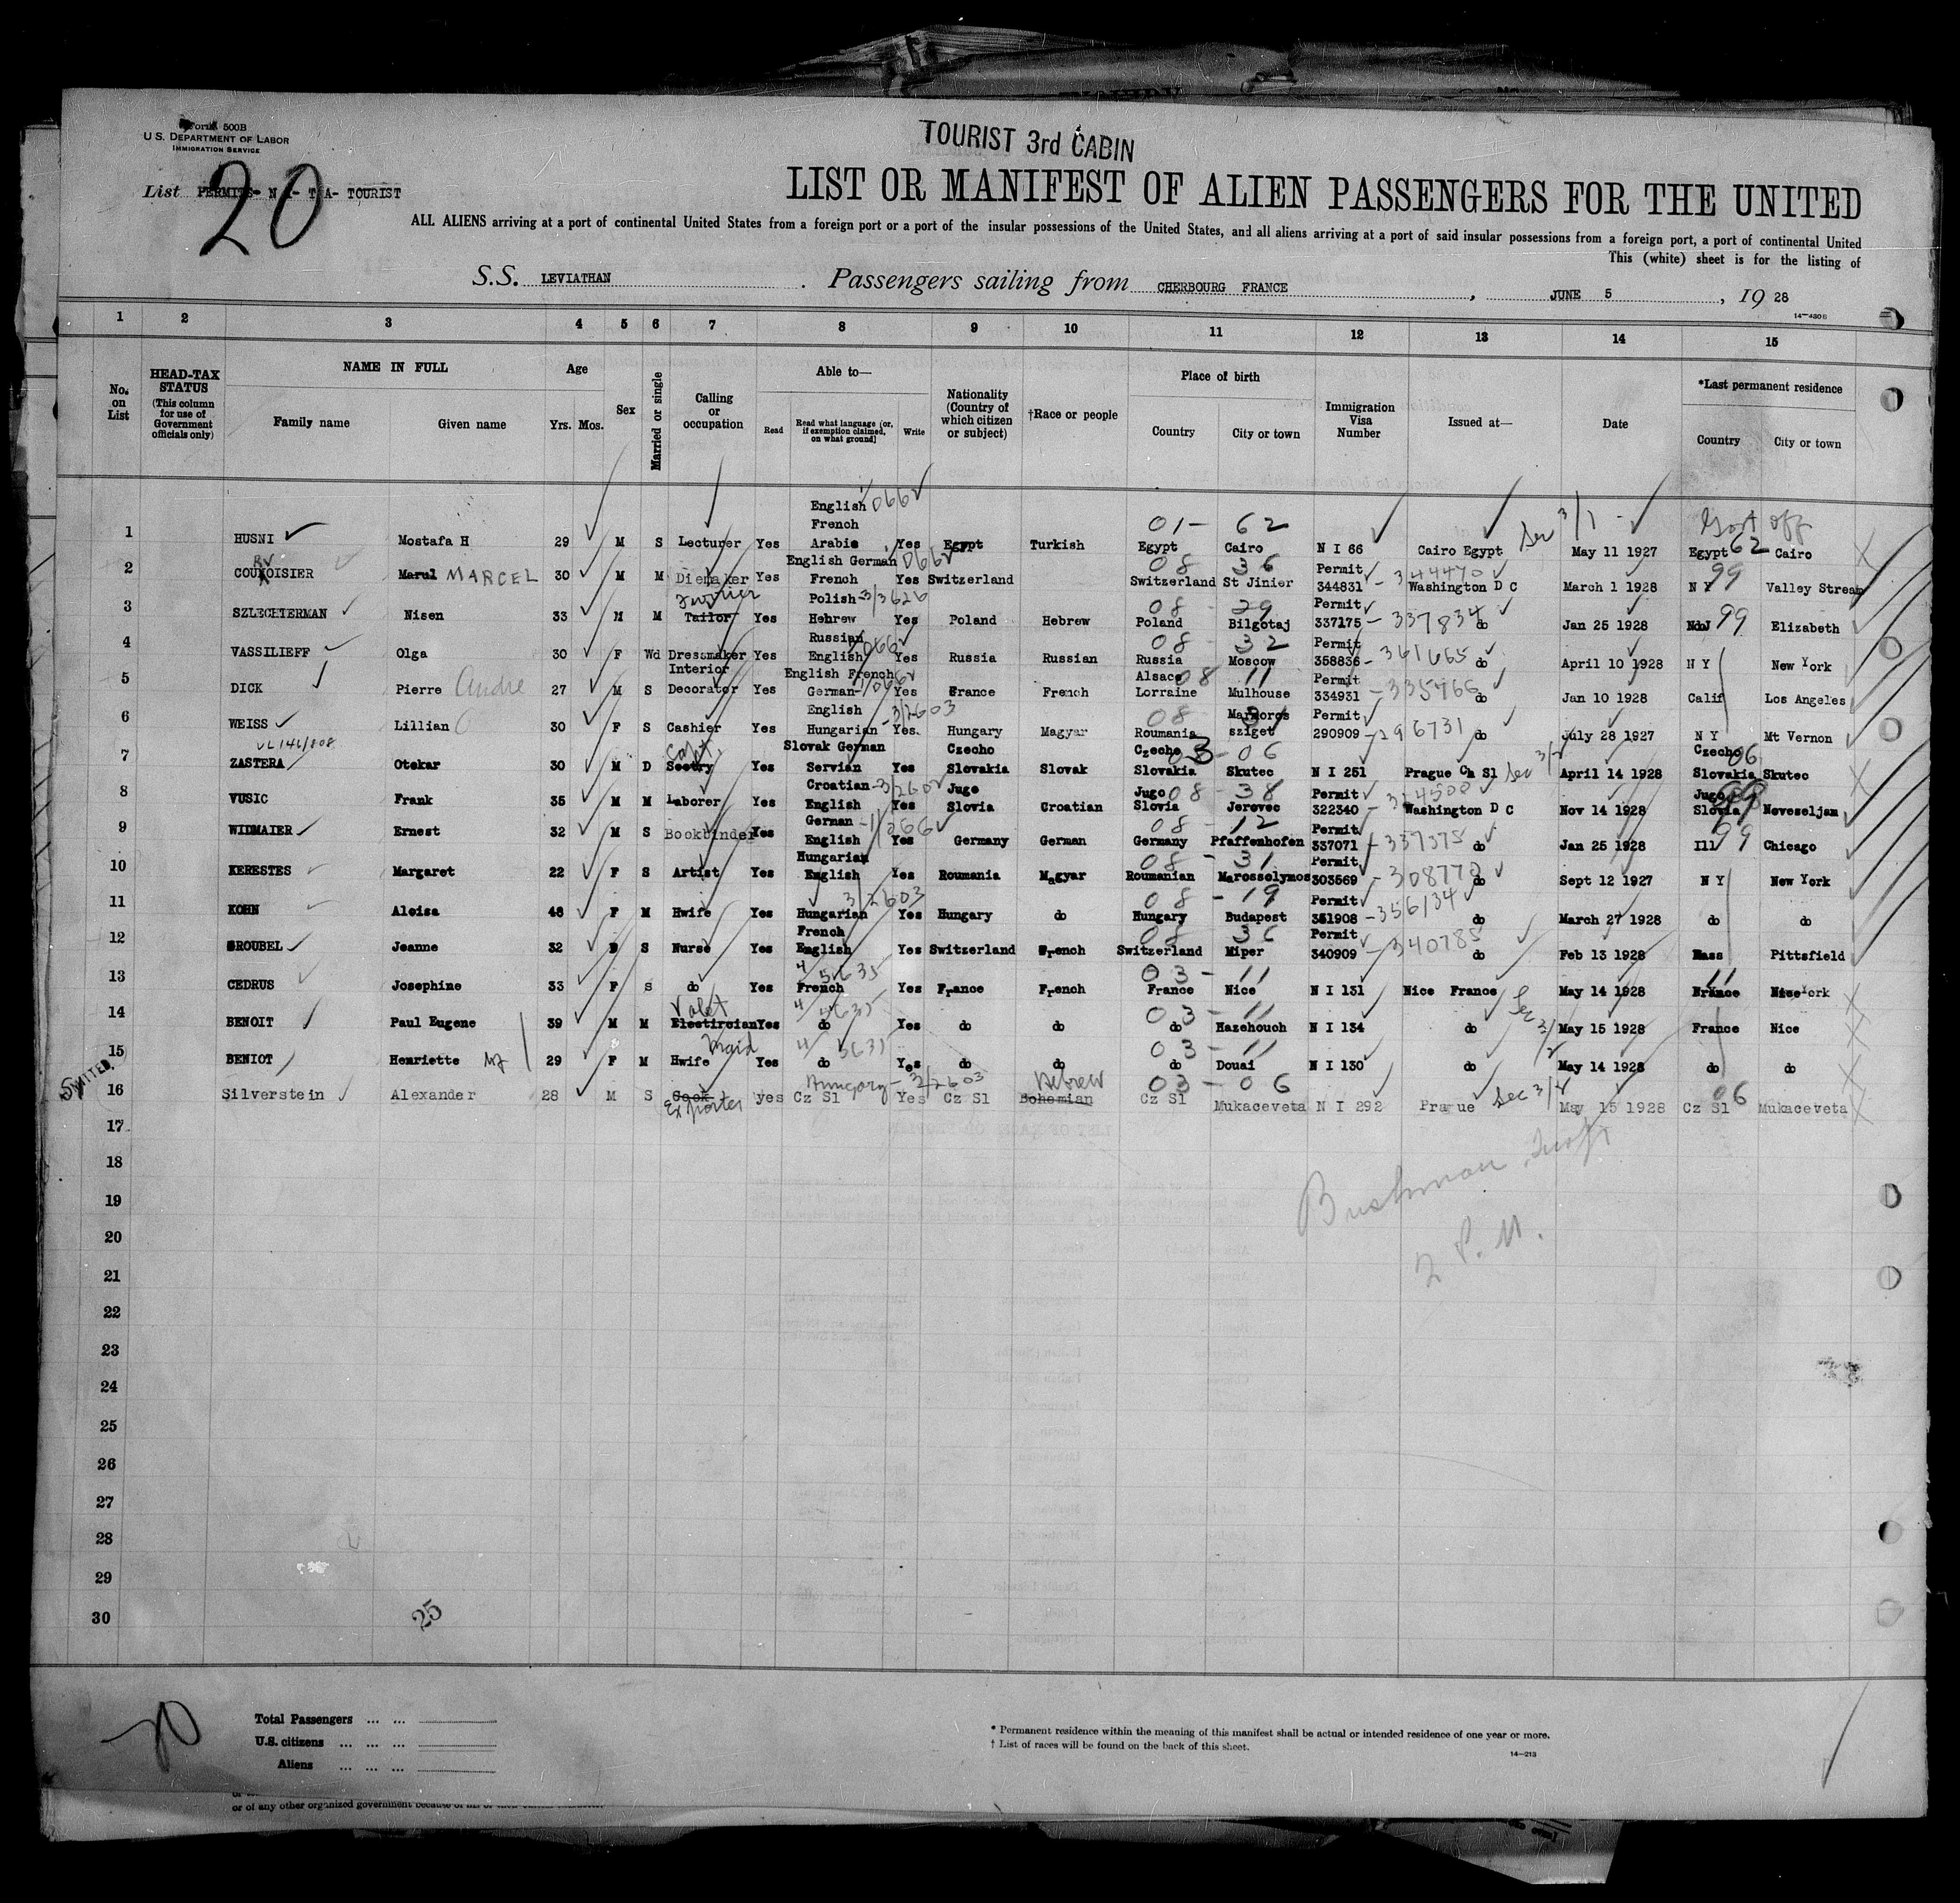 Form 500B
U.S. DEPARTMENT OF LABOR
IMMIGRATION SERVICE
TOURIST 3rd CABIN
List PERMITS- N I- T A- TOURIST
20
LIST OR MANIFEST OF ALIEN PASSENGERS FOR THE UNITED
ALL ALIENS arriving at a port of continental United States from a foreign port or a port of the insular possessions of the United States, and all aliens arriving at a port of said insular possessions from a foreign port, a port of continental United
This (white) sheet is for the listing of
S.S. LEVIATHAN. Passengers sailing from CHERBOURG FRANCE, JUNE 5, 19 28
14-430B
1 2 3 4 5 6 7 8 9 10 11 12 13 14 15
No. on List
HEAD-TAX STATUS (This column for use of Government officials only)
NAME IN FULL
Family name Given name
Age
Yrs. Mos.
Sex
Married or single
Calling or occupation
Able to—
Read Read what language [or, if exemption claimed, on what ground] Write
Nationality (Country of which citizen or subject)
†Race or people
Place of birth
Country City or town
Immigration Visa Number
Issued at—
Date
*Last permanent residence
Country City or town
1 HUSNI Mostafa H 29 M S Lecturer Yes English French Arabic Yes Egypt Turkish 01- 62 Egypt Cairo N I 66 Cairo Egypt Sec 3/1 May 11 1927 Govt off Egypt 62 Cairo
2 COUVOISIER RV Marul MARCEL 30 M M Diemaker Yes English German French Yes Switzerland 08 36 Switzerland St Jinier Permit 344831 - 344470 Washington D C March 1 1928 N Y 99 Valley Stream
3 SZLECHTERMAN Nisen 33 M M Furrier Tailor Yes Polish Hebrew Yes Poland Hebrew 08 - 29 Poland Bilgotaj Permit 337175 - 337834 do Jan 25 1928 NoJ 99 Elizabeth
4 VASSILIEFF Olga 30 F Wd Dressmaker Yes Russian English Yes Russia Russian 08 - 32 Russia Moscow Permit 358836 - 361665 do April 10 1928 N Y New York
5 DICK Pierre Andre 27 M S Interior Decorator Yes English French German Yes France French Alsace Lorraine 08 11 Mulhouse Permit 334931 - 335466 do Jan 10 1928 Calif Los Angeles
6 WEISS Lillian 30 F S Cashier Yes English Hungarian - 3/2603 Yes Hungary Magyar 08 31 Roumania Marmoros sziget Permit 290909 - 296731 do July 28 1927 N Y Mt Vernon
7 ZASTERA Otokar 30 M D Sectry Yes Slovak German Servian Yes Czecho Slovakia Slovak 03 - 06 Czecho Slovakia Skutec N I 251 Prague Ch Sl Sec 3/2 April 14 1928 Czecho Slovakia 06 Skutec
8 VUSIC Frank 35 M M Laborer Yes Croatian English Yes Jugo Slovia Croatian 08 - 38 Jugo Slovia Jerovec Permit 322340 - 324500 Washington D C Nov 14 1928 Jugo Slovia 99 Neveseljam
9 WIDMAIER Ernest 32 M S Bookbinder Yes German English Yes Germany German 08 - 12 Germany Pfaffenhofen Permit 337071 - 337375 do Jan 25 1928 Ill 99 Chicago
10 KERESTES Margaret 22 F S Artist Yes Hungarian English Yes Roumania Magyar 08 - 31 Roumanian Marosselymos Permit 303569 - 308772 do Sept 12 1927 N Y New York
11 KOHN Aloisa 48 F M Hwife Yes 3/2603 Hungarian Yes Hungary do 08 - 19 Hungary Budapest Permit 351908 - 356134 do March 27 1928 do do
12 GROUBEL Jeanne 32 F S Nurse Yes French English Yes Switzerland French 08 36 Switzerland Miper Permit 340909 - 340785 do Feb 13 1928 Mass Pittsfield
13 CEDRUS Josephine 33 F S do Yes 4/5635 French Yes France French 03 - 11 France Nice N I 131 Nice France May 14 1928 France 11 Nice
14 BENOIT Paul Eugene 39 M M Valet Electircian Yes 4/4635 do Yes do do 03 - 11 do Hazehouch N I 134 do Sec 3/2 May 15 1928 France Nice
15 BENIOT Henriette 29 F M Maid Hwife Yes 4/5635 do Yes do do 03 - 11 do Douai N I 130 do May 14 1928 do do
16 Silverstein Alexander 28 M S Cook Exporter yes Cz Sl Hungary - 3/2603 Yes Cz Sl Hebrew Bohemian 03 - 06 Cz Sl Mukaceveta N I 292 Prague Sec 3/2 May 15 1928 Cz Sl 06 Mukaceveta
17
18
19
20
21
22
23
24
25
26
27
28
29
30
Bushman
2 P.M.
25
20
Total Passengers
U.S. citizens
Aliens
* Permanent residence within the meaning of this manifest shall be actual or intended residence of one year or more.
† List of races will be found on the back of this sheet.
14-213
or of any other organized government because of his or their official character.